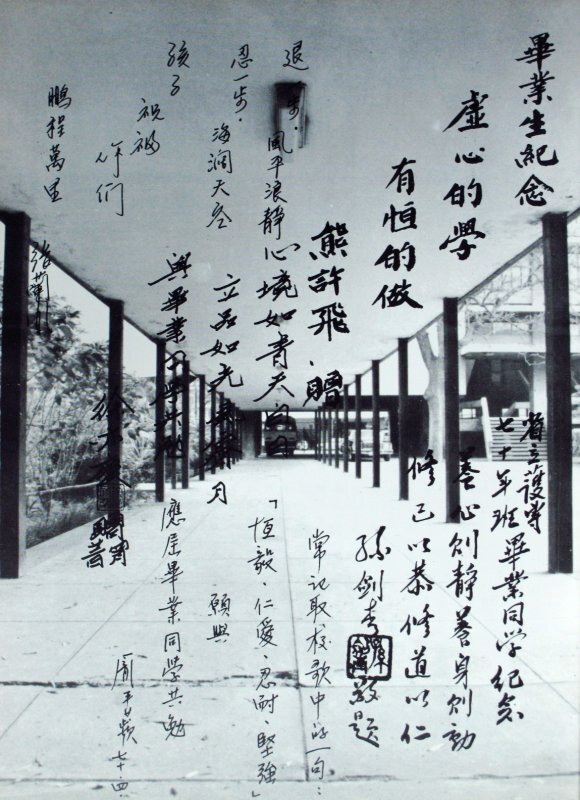 畢業生紀念
虛心的學
有恒的做
熊許飛 贈
省立護專
七十年班畢業同学紀念
養心則靜養身則動
修己以恭修道以仁
孫剑青
敬題
退一步,風平浪靜
忍一步,海濶天空
孩子
祝福
你們
鵬程萬里
心境如青天白日
立品如光風霽月
與畢業同學共勉
常記取校歌中的一句:
「恒毅、仁愛、忍耐、堅強」
願與
應屆畢業同學共勉